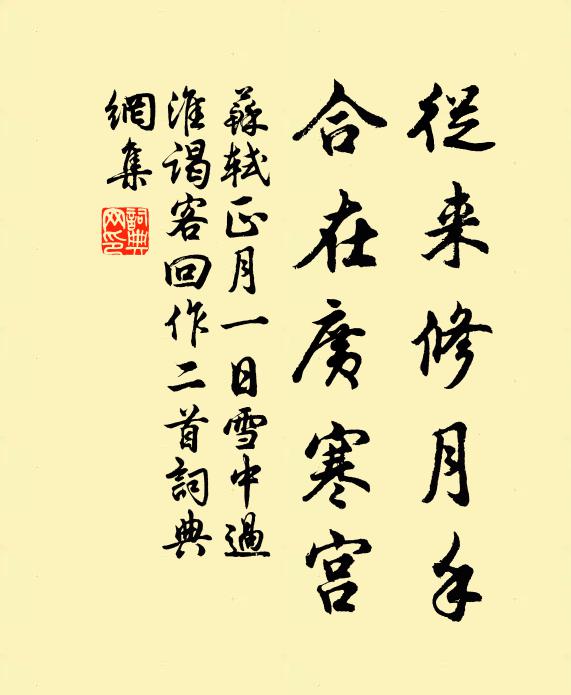 從来修月手
合在廣寒宫
蘇軾正月一日雪中過
淮謁客回作二首詞典
網集
詞典
网印